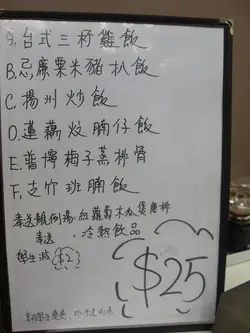 A,台式三杯雞飯
B,忌廉粟米豬扒飯
C,揚州炒飯
D,蓮藕炆腩仔飯
E,普寧梅子蒸排骨
F,支竹班腩飯
奉送靚例湯:紅蘿蔔木瓜煲唐排
奉送 冷熱飲品
學生減$2
$25